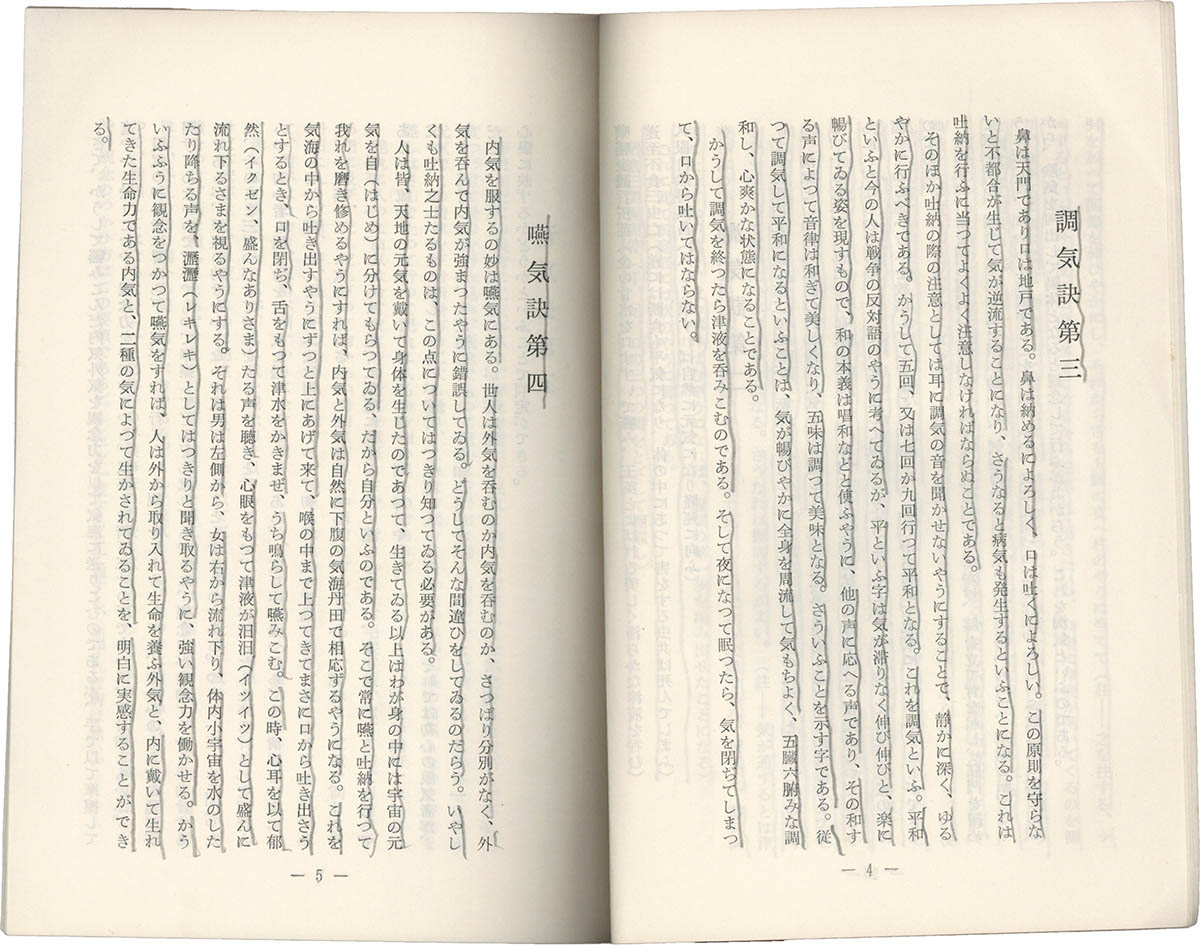 調気訣第三
鼻は天門であり口は地戸である。鼻は納めるによろしく、口は吐くによろしい。この原則を守らな
いと不都合が生じて気が逆流することになり、さうなると病気も発生するといふことになる。これは
吐納を行ふに当つてよくよく注意しなければならぬことである。
そのほか吐納の際の注意としては耳に調気の音を聞かせないやうにすることで、静かに深く、ゆる
やかに行ふべきである。かうして五回、又は七回か九回行つて平和となる。これを調気といふ。平和
といふと今の人は戦争の反対語のやうに考へてゐるが、平といふ字は気が滞りなく伸び伸びと、楽に
暢びてゐる姿を現すもので、和の本義は唱和などと使ふやうに、他の声に応へる声であり、その和す
る声によつて音律は和ぎて美しくなり、五味は調つて美味となる。さういふことを示す字である。従
つて調気して平和になるといふことは、気が暢びやかに全身を周流して気もちよく、五臓六腑みな調
和し、心爽かな状態になることである。
かうして調気を終つたら津液を呑みこむのである。そして夜になつて眠つたら、気を閉ぢてしまつ
て、口から吐いてはならない。
― 4 ―
嚥気訣第四
内気を服するの妙は嚥気にある。世人は外気を呑むのか内気を呑むのか、さつぱり分別がなく、外
気を呑んで内気が強まつたやうに錯誤してゐる。どうしてそんな間違ひをしてゐるのだらう。いやし
くも吐納之士たるものは、この点についてはつきり知つてゐる必要がある。
人は皆、天地の元気を戴いて身体を生じたのであつて、生きてゐる以上はわが身の中には宇宙の元
気を自(はじめ)に分けてもらつてゐる、だから自分といふのである。そこで常に嚥と吐納を行つて
我れを磨き修めるやうにすれば、内気と外気は自然に下腹の気海丹田で相応ずるやうになる。これを
気海の中から吐き出すやうにずつと上にあげて来て、喉の中まで上つてきてまさに口から吐き出さう
とするとき、口を閉ぢ、舌をもつて津水をかきまぜ、うち鳴らして嚥みこむ。この時、心耳を以て郁
然(イクゼン、盛んなありさま)たる声を聴き、心眼をもつて津液が汨汨(イツイツ)として盛んに
流れ下るさまを視るやうにする。それは男は左側から、女は右から流れ下り、体内小宇宙を水のした
たり降ちる声を、瀝瀝(レキレキ)としてはつきりと聞き取るやうに、強い観念力を働かせる。かう
いふふうに観念をつかつて嚥気をすれば、人は外から取り入れて生命を養ふ外気と、内に戴いて生れ
てきた生命力である内気と、二種の気によつて生かされてゐることを、明白に実感することができ
る。
― 5 ―